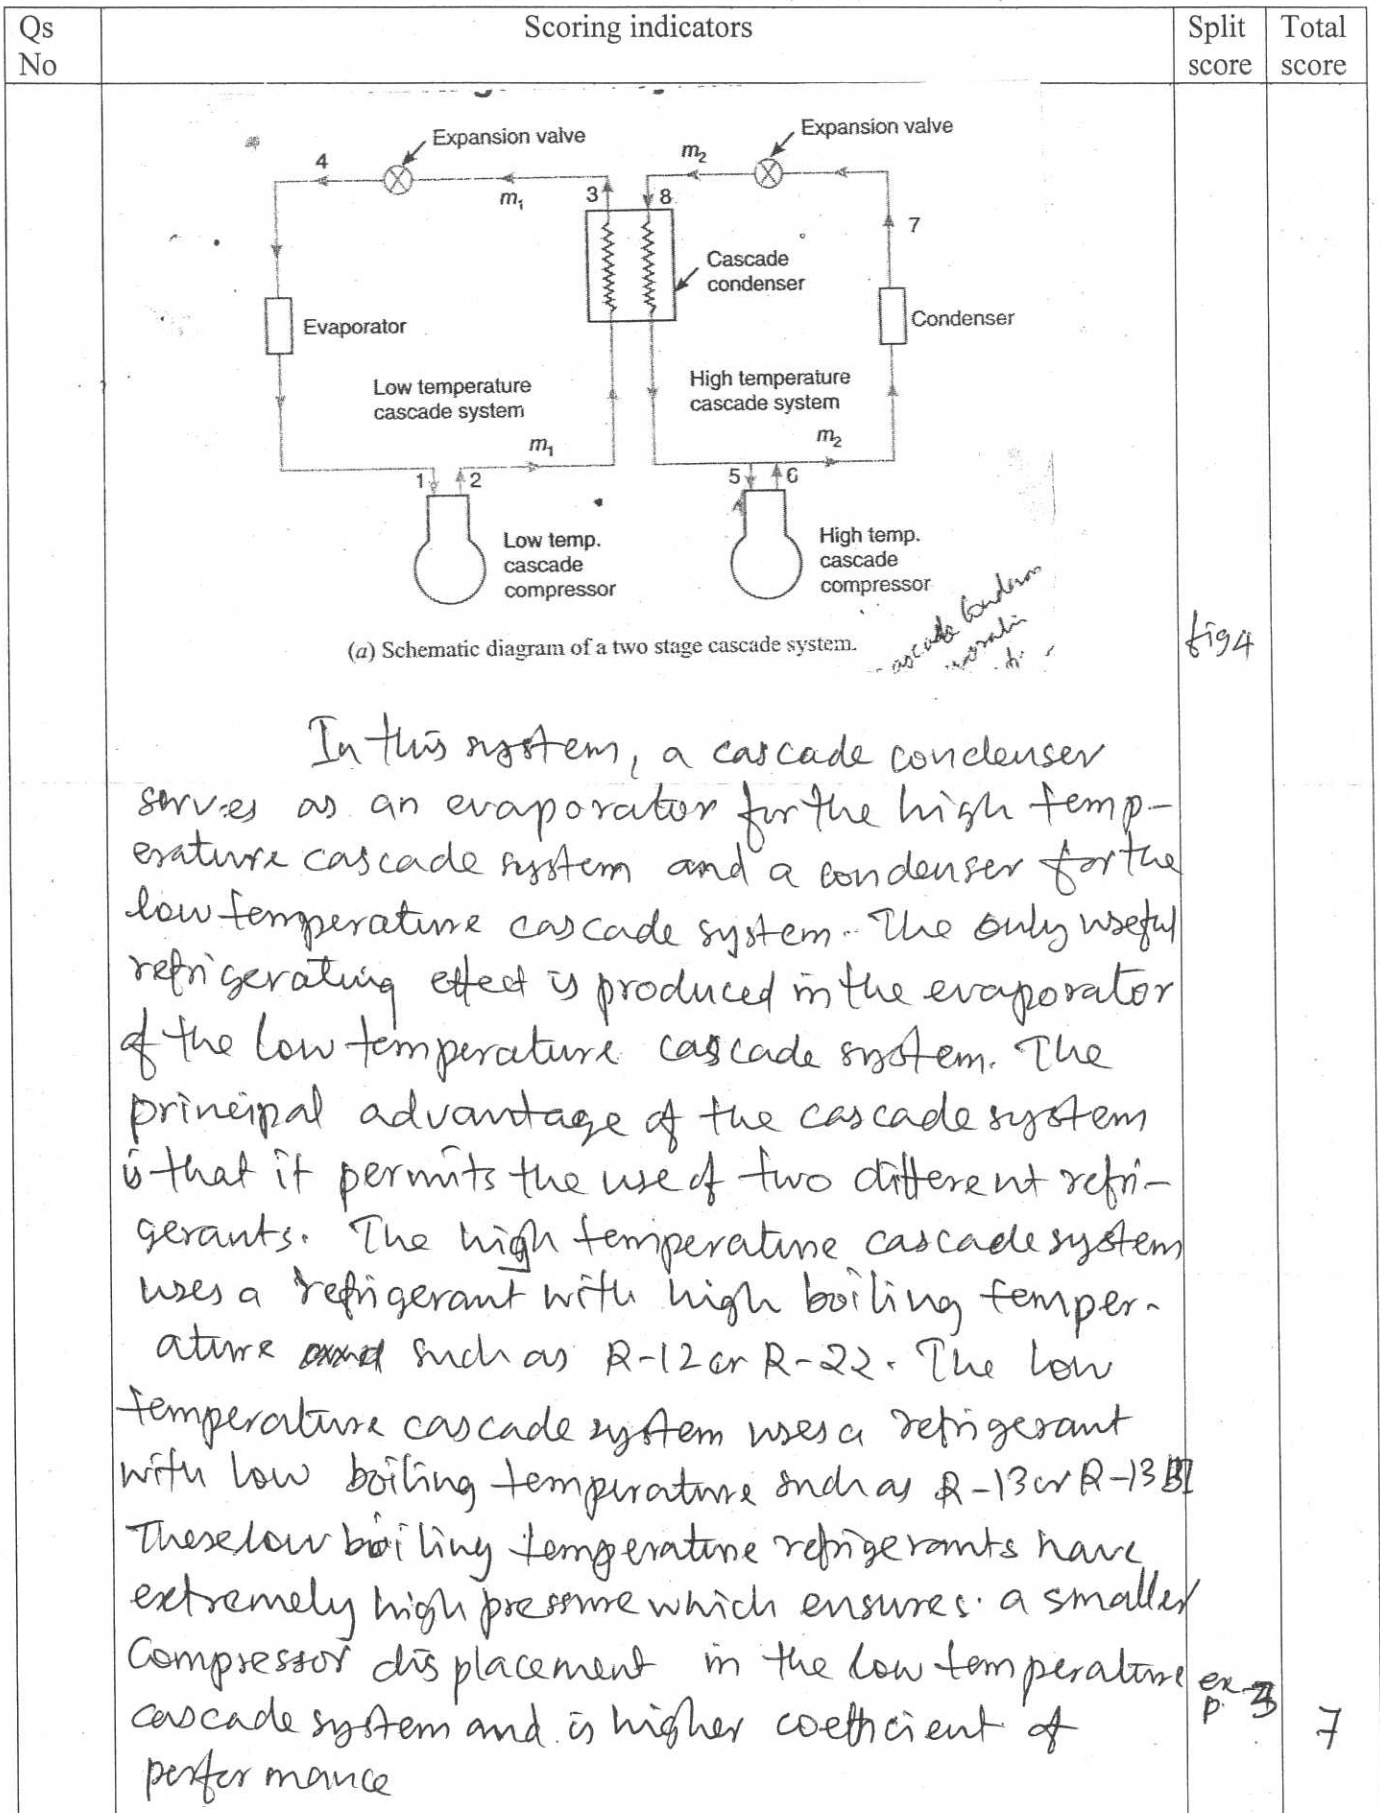 Qs No
Scoring indicators
Split score
Total score
Expansion valve
Expansion valve
4
m2
m1
3
8
7
Cascade
condenser
Evaporator
Condenser
Low temperature
cascade system
High temperature
cascade system
m1
m2
1
2
5
6
Low temp.
cascade
compressor
High temp.
cascade
compressor
(a) Schematic diagram of a two stage cascade system.
fig 4
In this system, a cascade condenser
serves as an evaporator for the high temp-
erature cascade system and a condenser for the
low temperature cascade system. The only useful
refrigerating effect is produced in the evaporator
of the low temperature cascade system. The
principal advantage of the cascade system
is that it permits the use of two different refri-
gerants. The high temperature cascade system
uses a refrigerant with high boiling temper-
ature such as R-12 or R-22. The low
temperature cascade system uses a refrigerant
with low boiling temperature such as R-13 or R-13B1
These low boiling temperature refrigerants have
extremely high pressure which ensures a smaller
Compressor displacement in the low temperature
cascade system and is higher coefficient of
performance
exp. 3
7